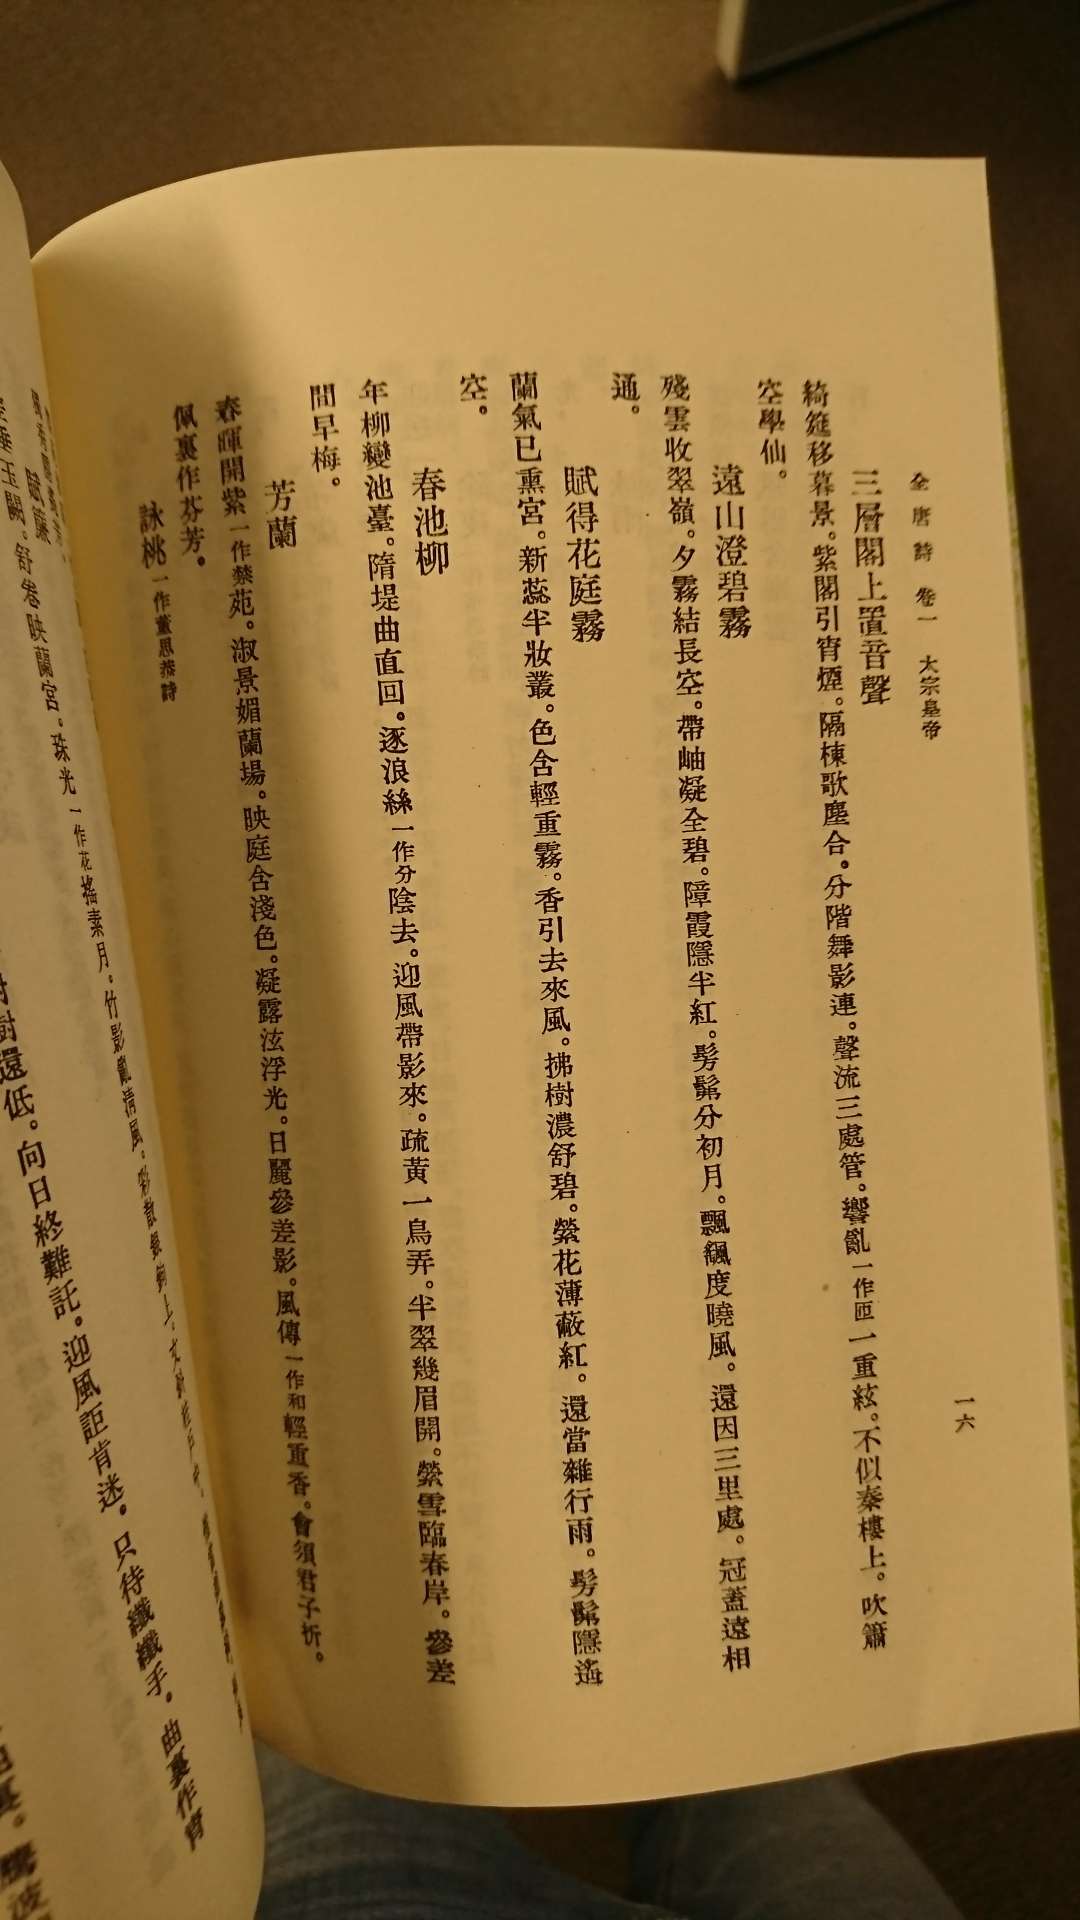 全唐詩 卷一 太宗皇帝
一六
三層閣上置音聲
綺筵移暮景。紫閣引宵煙。隔棟歌塵合。分階舞影連。聲流三處管。響亂一作匝一重絃。不似秦樓上。吹簫
空學仙。
遠山澄碧霧
殘雲收翠嶺。夕霧結長空。帶岫凝全碧。障霞隱半紅。髣髴分初月。飄颻度曉風。還因三里處。冠蓋遠相
通。
賦得花庭霧
蘭氣已熏宮。新蕊半妝叢。色含輕重霧。香引去來風。拂樹濃舒碧。縈花薄蔽紅。還當雜行雨。髣髴隱遙
空。
春池柳
年柳變池臺。隋堤曲直回。逐浪絲一作分陰去。迎風帶影來。疏黃一鳥弄。半翠幾眉開。縈雪臨春岸。參差
間早梅。
芳蘭
春暉開紫一作禁苑。淑景媚蘭場。映庭含淺色。凝露泫浮光。日麗參差影。風傳一作和輕重香。會須君子折。
佩裏作芬芳。
詠桃一作董思恭詩
賦簾
玉闕。舒卷映蘭宮。珠光一作花搖素月。竹影亂清風。彩散銀鉤上。文
樹還低。向日終難託。迎風詎肯迷。只待纖纖手。曲裏作宵